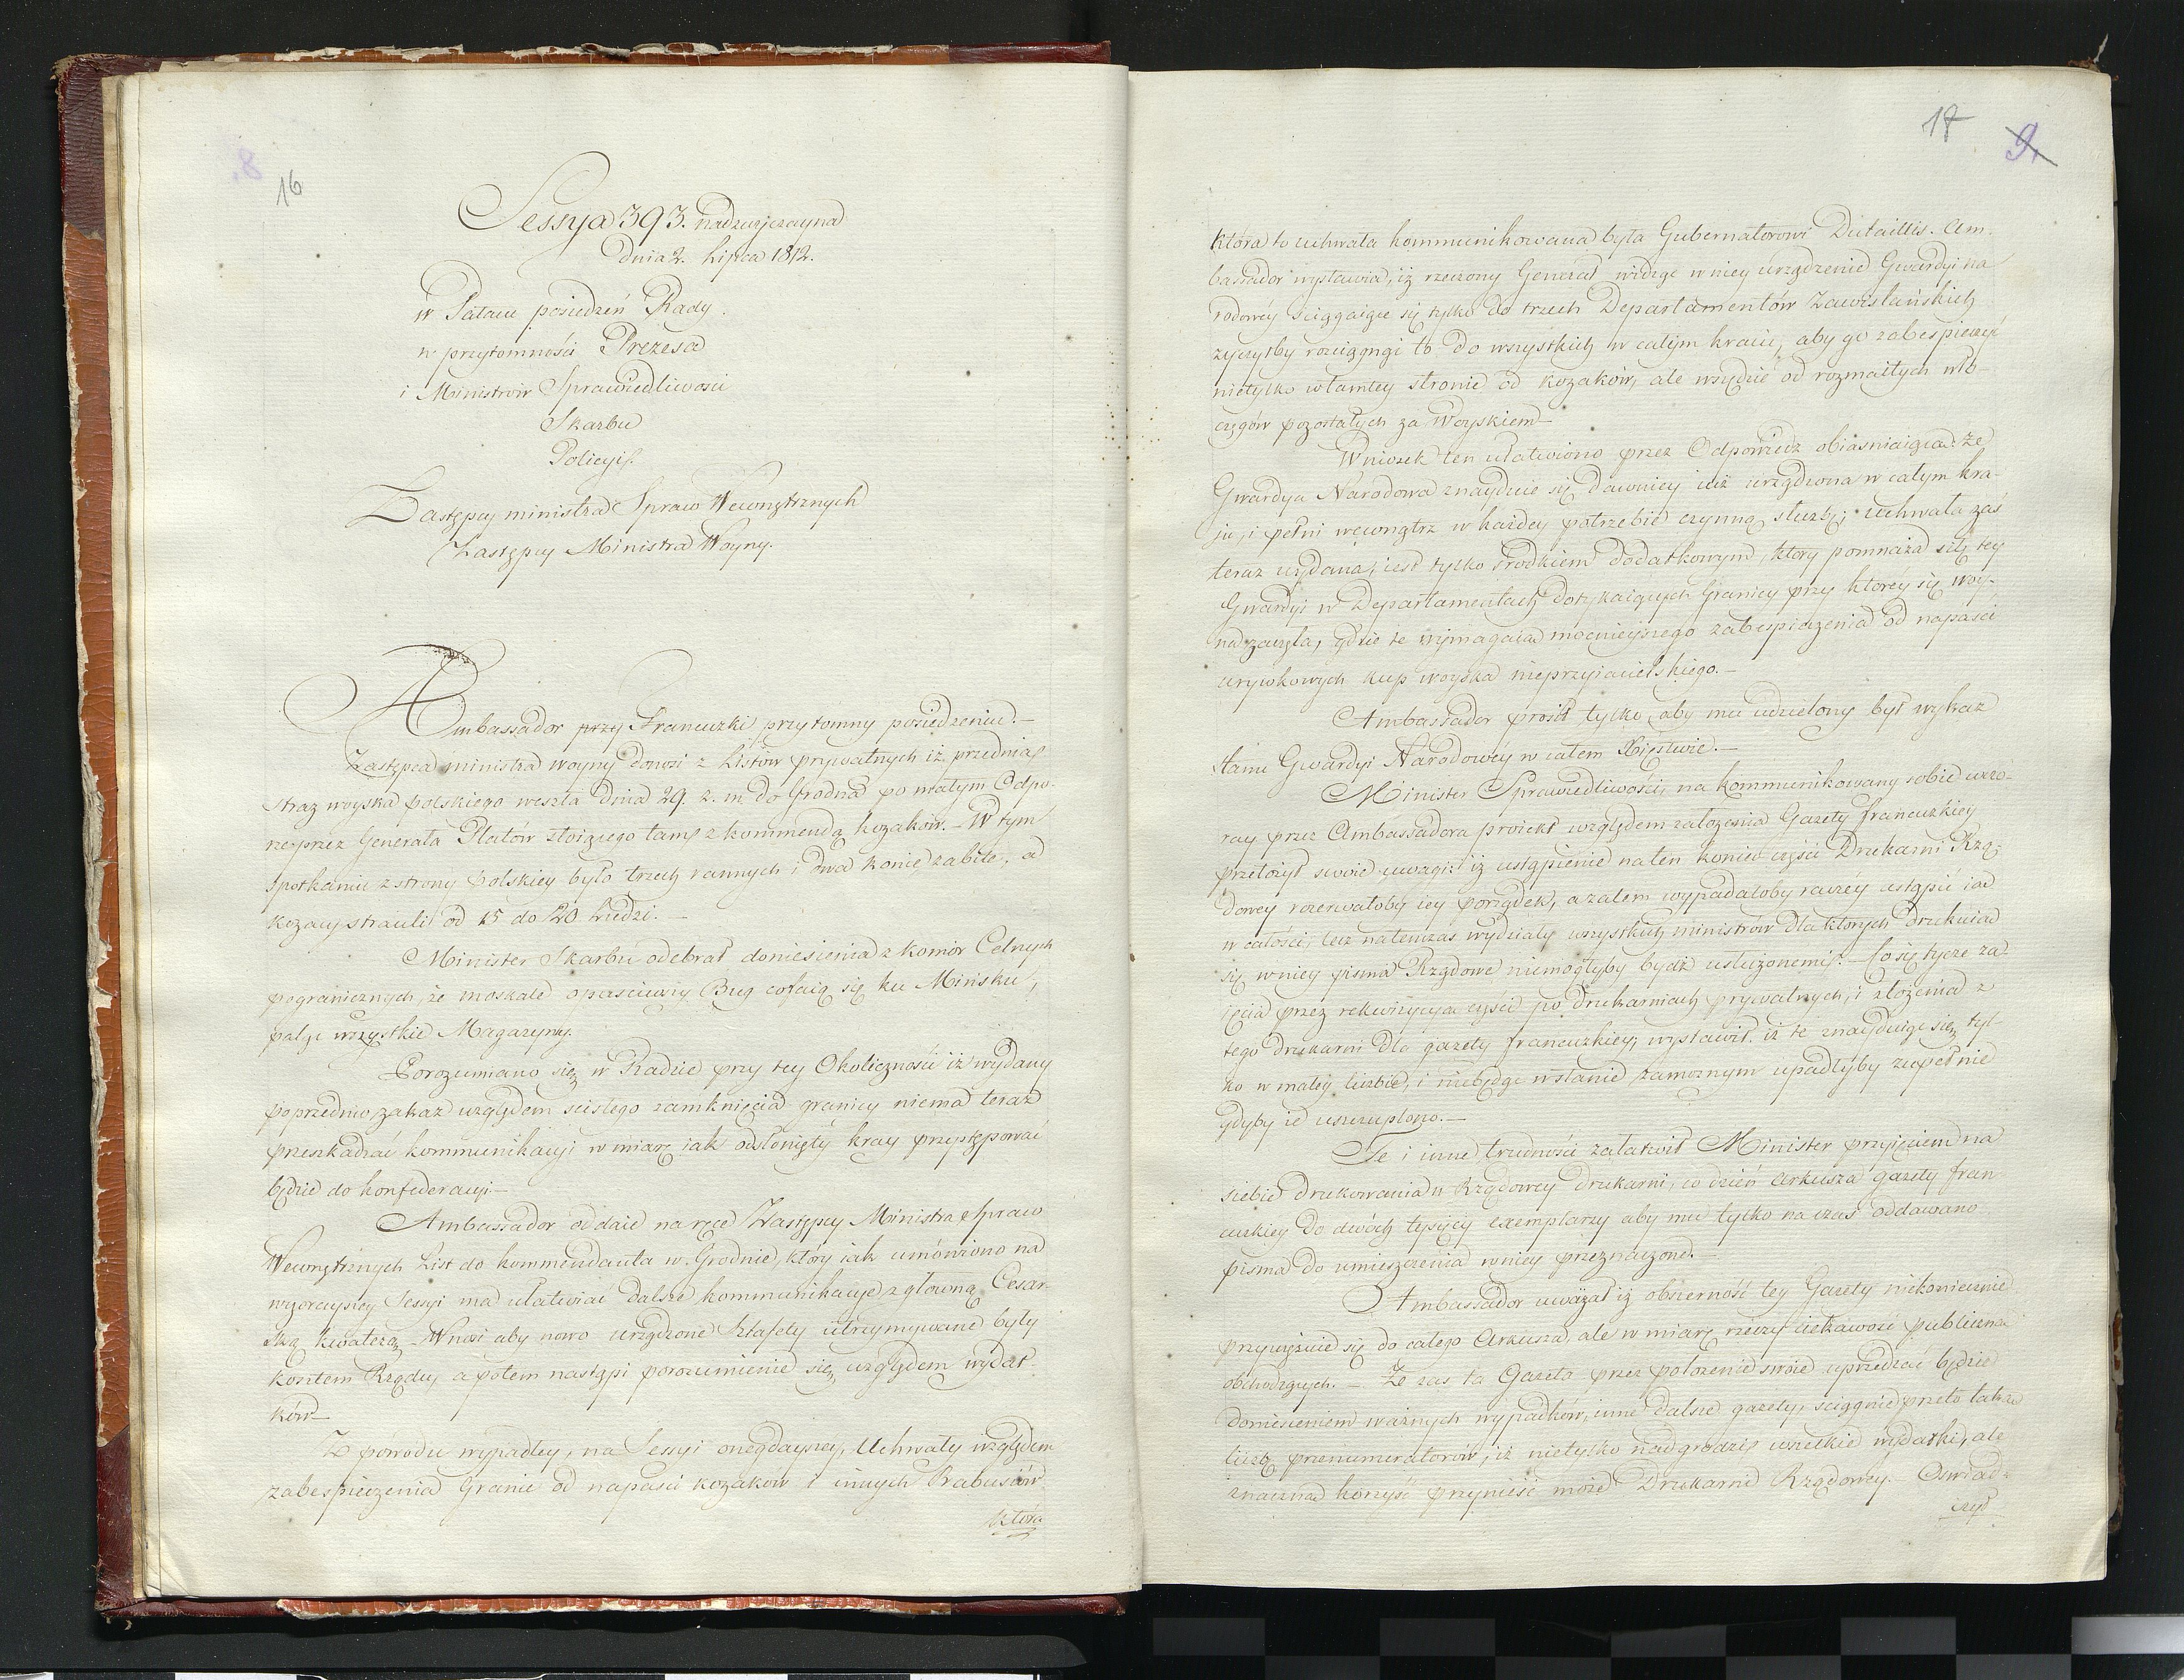 16
Sessya 393. nadzwyczayna
Dnia 2. Lipca 1812.
w Pałacu posiedzeń Rady.
w przytomności Prezesa
i Ministrów Sprawiedliwości
Skarbu
Policyi
Zastępcy ministra Spraw Wewnętrznych
Zastępcy Ministra Woyny.
Ambassador przy Francuzki przytomny posiedzeniu.—
Zastępca ministra woyny donosi z Listów prywatnych iż przednia
straz woyska polskiego weszła dnia 29. z. m. do Grodna po małym Odpo-
rze przez Generała Platów stoiącego tam z kommendą kozaków.— W tym
spotkaniu z strony polskiey było trzech rannych i dwa konie zabite, a
kozacy stracili od 15 do 20 Ludzi.—
Minister Skarbu odebrał doniesienia z komor Celnych
pogranicznych, że moskale opuściwszy Bug cofaią się ku Mińsku,
paląc wszystkie Magazyny.
Porozumiano się w Radzie przy tey Okoliczności iż wydany
poprzednio zakaz względem scisłego zamknięcia granicy niema teraz
przeszkadzać kommunikacyi w miarę iak odsłonięty kray przystępować
będzie do konfederacyi.—
Ambassador oddaie na ręce Zastępcy Ministra Spraw
Wewnętrznych List do kommendanta w Grodnie, który iak umówiono na
wczorayszey Sessyi ma ułatwiać dalsze kommunikacye z główną Cesar-
ską kwaterą.— Wnosi aby nowo urządzone Sztafety utrzymywane były
kosztem Rządu, a potem nastąpi porozumienie się względem wydat-
ków—
Z powodu wypadłey, na Sessyi onegdayszey, Uchwały względem
zabespieczenia Granic od napaści kozaków i innych Rabusiów
która
17 9.
która to uchwała kommunikowana była Gubernatorowi Dutaillis. Am-
bassador wystawia, iż rzeczony Generał widząc w niey urządzenie Gwardyi na
rodowéy sciągaiące się tylko do trzech Departamentów Zawiślańskich
życzyłby rozciągnąć to do wszystkich w całym kraiu, aby go zabespieczyć
nietylko w tamtey stronie od kozaków, ale wszędzie od rozmaitych włó-
częgów pozostałych za Woyskiem—
Wniosek ten ułatwiono przez Odpowiedz obiasniaiącą: że
Gwardya Narodowa znayduie się dawniey iuż urządzona w całym kra-
iu, i pełni wewnątrz w każdey potrzebie czynną służbę; uchwała zaś
teraz wydana, iest tylko srodkiem dodatkowym, który pomnaża siłę tey
Gwardyi w Departamentach dotykaiących Granicy przy którey się woy-
na zaczęła, gdzie te wymagaią mocnieyszego zabespieczenia od napaści
urywkowych kup woyska nieprzyiacielskiego.—
Ambassador prosił tylko, aby mu udzielony był wykaz
stanu Gwardyi Narodowéy w całem Xięstwie.—
Minister Sprawiedliwości, na kommunikowany sobie wczo-
ray przez Ambassadora proiekt względem założenia Gazety francuzkiey
przełożył swoie uwagi: iż ustąpienie na ten koniec części Drukarni Rzą-
dowey rozerwałoby iey porządek, a zatem wypadałoby raczéy ustąpić ią
w całości, lecz natenczas wydziały wszystkich ministrów dla których drukuią
się w niey pisma Rządowe niemogłyby bydź usłużonemi.— Co się tycze za-
ięcia przez rekwizycyą częsci po drukarniach prywatnych, i złożenia z
tego drukarni dla gazety francuzkiey; wystawił, iż te znayduiąc się tyl-
ko w małéy liczbie, i niebędąc w stanie zamożnym upadłyby zupełnie
gdyby ie uszczuplono.—
Te i inne trudności załatwił Minister przyięciem na
siebie drukowania w Rządowey drukarni, co dzień Arkusza gazety fran
cuzkiey do dwóch tysięcy exemplarzy aby mu tylko na czas oddawano
pisma do umieszczenia w niey przeznaczone.—
Ambassador uważał iż obszerność tey Gazety niekoniecznie
przywiąże się do całego Arkusza, ale w miarę rzeczy ciekawość publiczną
obchodzących.— Że zaś ta Gazeta przez położenie swoie uprzedzać będzie
doniesieniem ważnych wypadków, inne dalsze gazety, sciągnie przeto tak
liczbę prenumeratorów, iż nietylko nadgrodzi wszelkie wydatki, ale
znaczną korzyść przynieść może Drukarnie Rządowey.— Oswiad-
czył